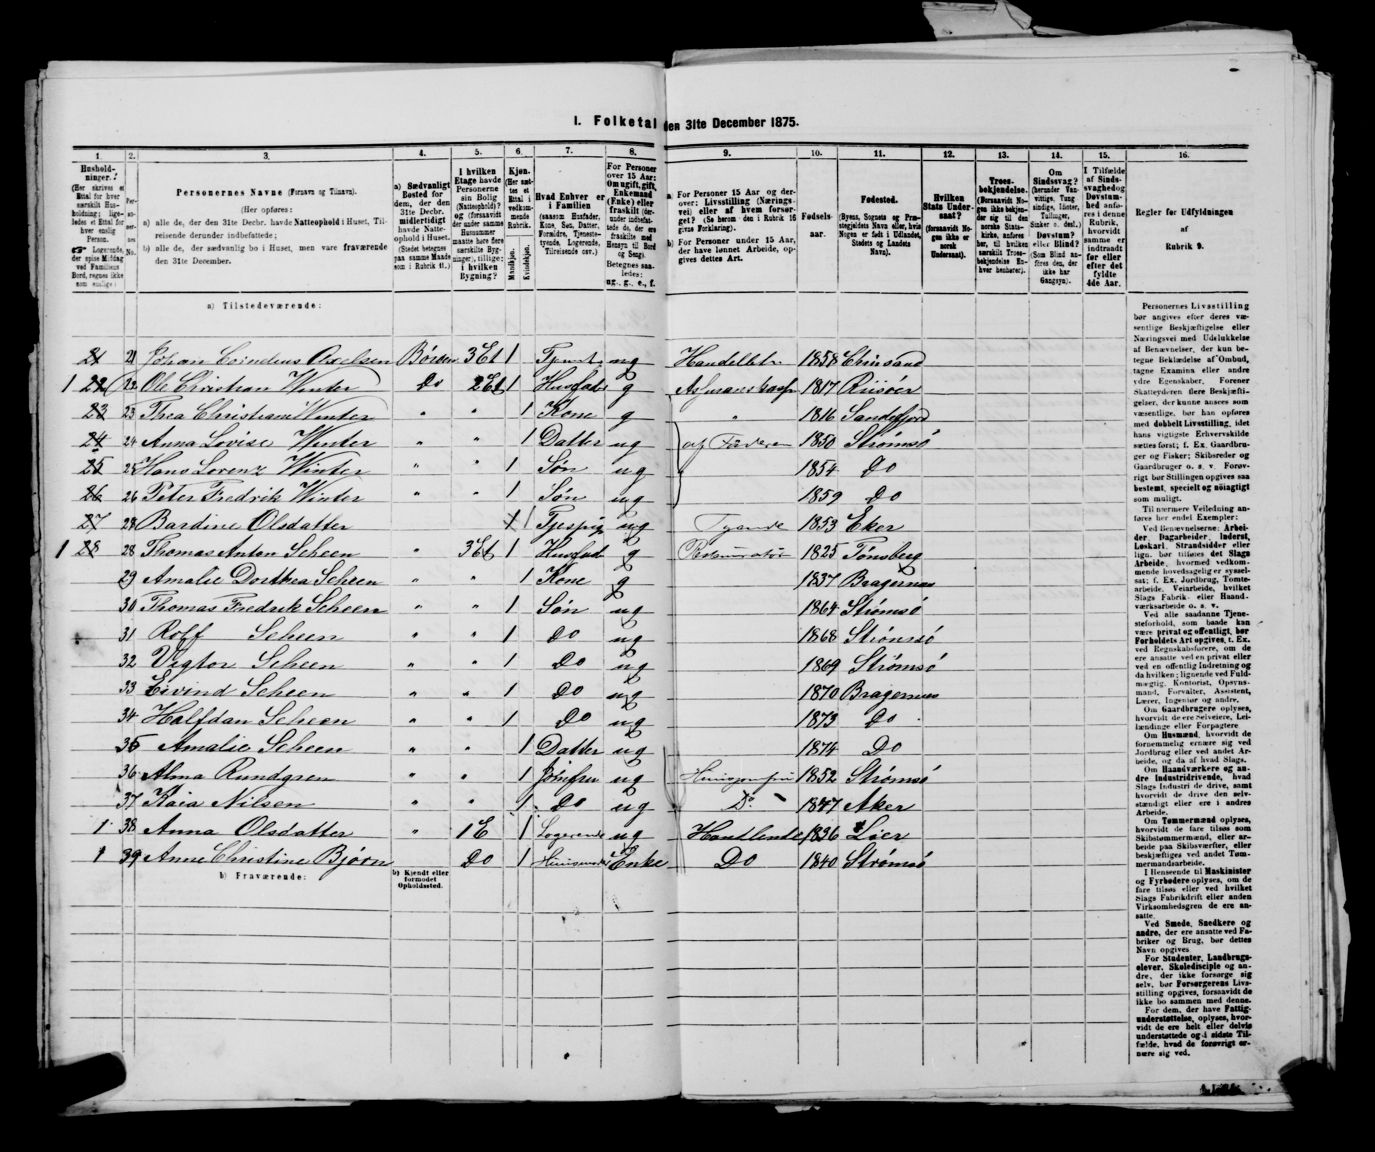 1. Folketal den 31te December 1875.
1. 2. 3. 4. 5. 6. 7. 8. 9. 10. 11. 12. 13. 14. 15. 16.
Personernes Navne (Fornavn og Tilnavn).
(Her opføres:
a) alle de, der den 31te Decbr. havde Natteophold i Huset, Tilreisende derunder indbefattede;
b) alle de, der sædvanlig bo i Huset, men vare fraværende den 31te December.
a) Sædvanligt Bosted for dem, der den 31te Decbr. midlertidigt havde Natteophold i Huset.
I hvilken Etage havde Personerne sin Bolig
Kjøn.
Mandkjøn. Kvindekjøn.
Hvad Enhver er i Familien
(saasom Husfader, Kone, Søn, Datter, Forældre, Tjenestetyende, Logerende, Tilreisende osv.)
For Personer over 15 Aar: Om ugift, gift, Enkemand (Enke) eller fraskilt
ug., g., e., f.
a. For Personer 15 Aar og derover: Livsstilling (Næringsvei) eller af hvem forsørget? (Se herom den i Rubrik 16 givne Forklaring).
b) For Personer under 15 Aar, der have lønnet Arbeide, opgives dettes Art.
Fødselsaar.
Fødested.
(Byens, Sognets og Præstegjeldets Navn eller, hvis Nogen er født i Udlandet, Stedets og Landets Navn).
Hvilken Stats Undersaat?
(forsaavidt Nogen ikke er norsk Undersaat).
Troesbekjendelse.
Om Sindssvag?
Døvstum? eller Blind?
I Tilfælde af Sindssvaghed og Døvstumhed anføres i denne Rubrik, hvorvidt samme er indtraadt før eller efter det fyldte 4de Aar.
Regler for Udfyldningen
af
Rubrik 9.
a) Tilstedeværende:
21 21 Johan Axelsen 3 Et 1 ug 1858
1 22 22 Ole Christian Winter Do 2 Et 1 Husfader g 1817 Risøer
23 23 Thea Christiane Winter " " 1 Kone g " 1816 Sandefjord
24 24 Anna Lovise Winter " " 1 Datter ug af Faderen 1850 Strømsø
25 25 Hans Lorenz Winter " " 1 Søn ug 1854 Do
26 26 Peter Fredrik Winter " " 1 Søn ug 1859 Do
27 Bardine Olsdatter 1 Tjenpig ug Tyende 1853 Eker
1 28 28 Thomas Anton Scheen " 3 Et 1 Husfad g 1825 Tønsberg
29 Amalie Dorthea Scheen " " 1 Kone g 1837 Bragernæs
30 Thomas Fredrik Scheen " " 1 Søn ug 1864 Strømsø
31 Rolf Scheen " " 1 Do ug 1868 Strømsø
32 Vigtor Scheen " " 1 Do ug 1869 Strømsø
33 Eivind Scheen " " 1 Do ug 1870 Bragernæs
34 Halfdan Scheen " " 1 Do ug 1873 Do
35 Amalie Scheen " " 1 Datter ug 1874 Do
36 Alma Rundgren " " 1 Jomfru ug Husjomfru 1852 Strømsø
37 Kaia Nilsen " " 1 Do ug Do 1847 Aker
1 38 Anna Olsdatter " 1 E 1 Logerende ug 1836 Lier
1 39 Anne Christine Bjørn Do 1 Enke Do 1840 Strømsø
b) Fraværende:
b) Kjendt eller formodet Opholdssted.
Personernes Livsstilling
bør angives efter deres væ-
sentlige Beskjæftigelse eller
Næringsvei med Udelukkelse
af Benævnelser, der kun be-
tegne Beklædelse af Ombud,
tagne Examina eller andre
ydre Egenskaber. Forener
Skatteyderen flere Beskjæfti-
gelser, der kunne ansees som
væsentlige, bør han opføres
med dobbelt Livsstilling, idet
hans vigtigste Erhvervskilde
sættes først; f. Ex. Gaardbru-
ger og Fisker; Skibsreder og
Gaardbruger o. s. v. Forøv-
rigt bør Stillingen opgives saa
bestemt, specielt og nøiagtigt
som muligt.
Til nærmere Veiledning an-
føres her endel Exempler:
Ved Benævnelserne: Arbei-
der, Dagarbeider, Inderst,
Løskarl, Strandsidder eller
lign. bør tilføies det Slags
Arbeide, hvormed vedkom-
mende hovedsagelig er syssel-
sat; f. Ex. Jordbrug, Tomte-
arbeide, Veiarbeide, hvilket
Slags Fabrik- eller Haand-
værksarbeide o. s. v.
Ved alle saadanne Tjene-
steforhold, som baade kan
være privat og offentligt, bør
Forholdets Art opgives, t. Ex.
ved Regnskabsførere, om de
ere ansatte ved en privat eller
ved en offentlig Indretning og
da hvilken; lignende ved Fuld-
mægtig, Kontorist, Opsyns-
mand, Forvalter, Assistent,
Lærer, Ingeniør og andre.
Om Gaardbrugere oplyses,
hvorvidt de ere Selveiere, Lei-
lændinge eller Forpagtere.
Om Husmænd, hvorvidt de
fornemmelig ernære sig ved
Jordbrug eller ved andet Ar-
beide, og da af hvad Slags.
Om Haandværkere og an-
dre Industridrivende, hvad
Slags Industri de drive, samt
hvorvidt de drive den selv-
stændigt eller ere i andres
Arbeide.
Om Tømmermænd oplyses,
hvorvidt de fare tilsøs som
Skibstømmermænd, eller ar-
beide paa Skibsværfter, eller
beskjæftiges ved andet Tøm-
mermandsarbeide.
I Henseende til Maskinister
og Fyrbødere oplyses, om de
fare tilsøs eller ved hvilket
Slags Fabrikdrift eller anden
Virksomhedsgren de ere an-
satte.
Ved Smede, Snedkere og
andre, der ere ansatte ved Fa-
briker og Brug, bør dettes
Navn opgives.
For Studenter, Landbrugs-
elever, Skoledisciple og an-
dre, der ikke forsørge sig
selv, bør Forsørgerens Livs-
stilling opgives, forsaavidt de
ikke bo sammen med denne.
For dem, der have Fattig-
understøttelse, oplyses, hvor-
vidt de ere helt eller delvis
understøttede og i sidste Til-
fælde, hvad de forøvrigt er-
nære sig ved.